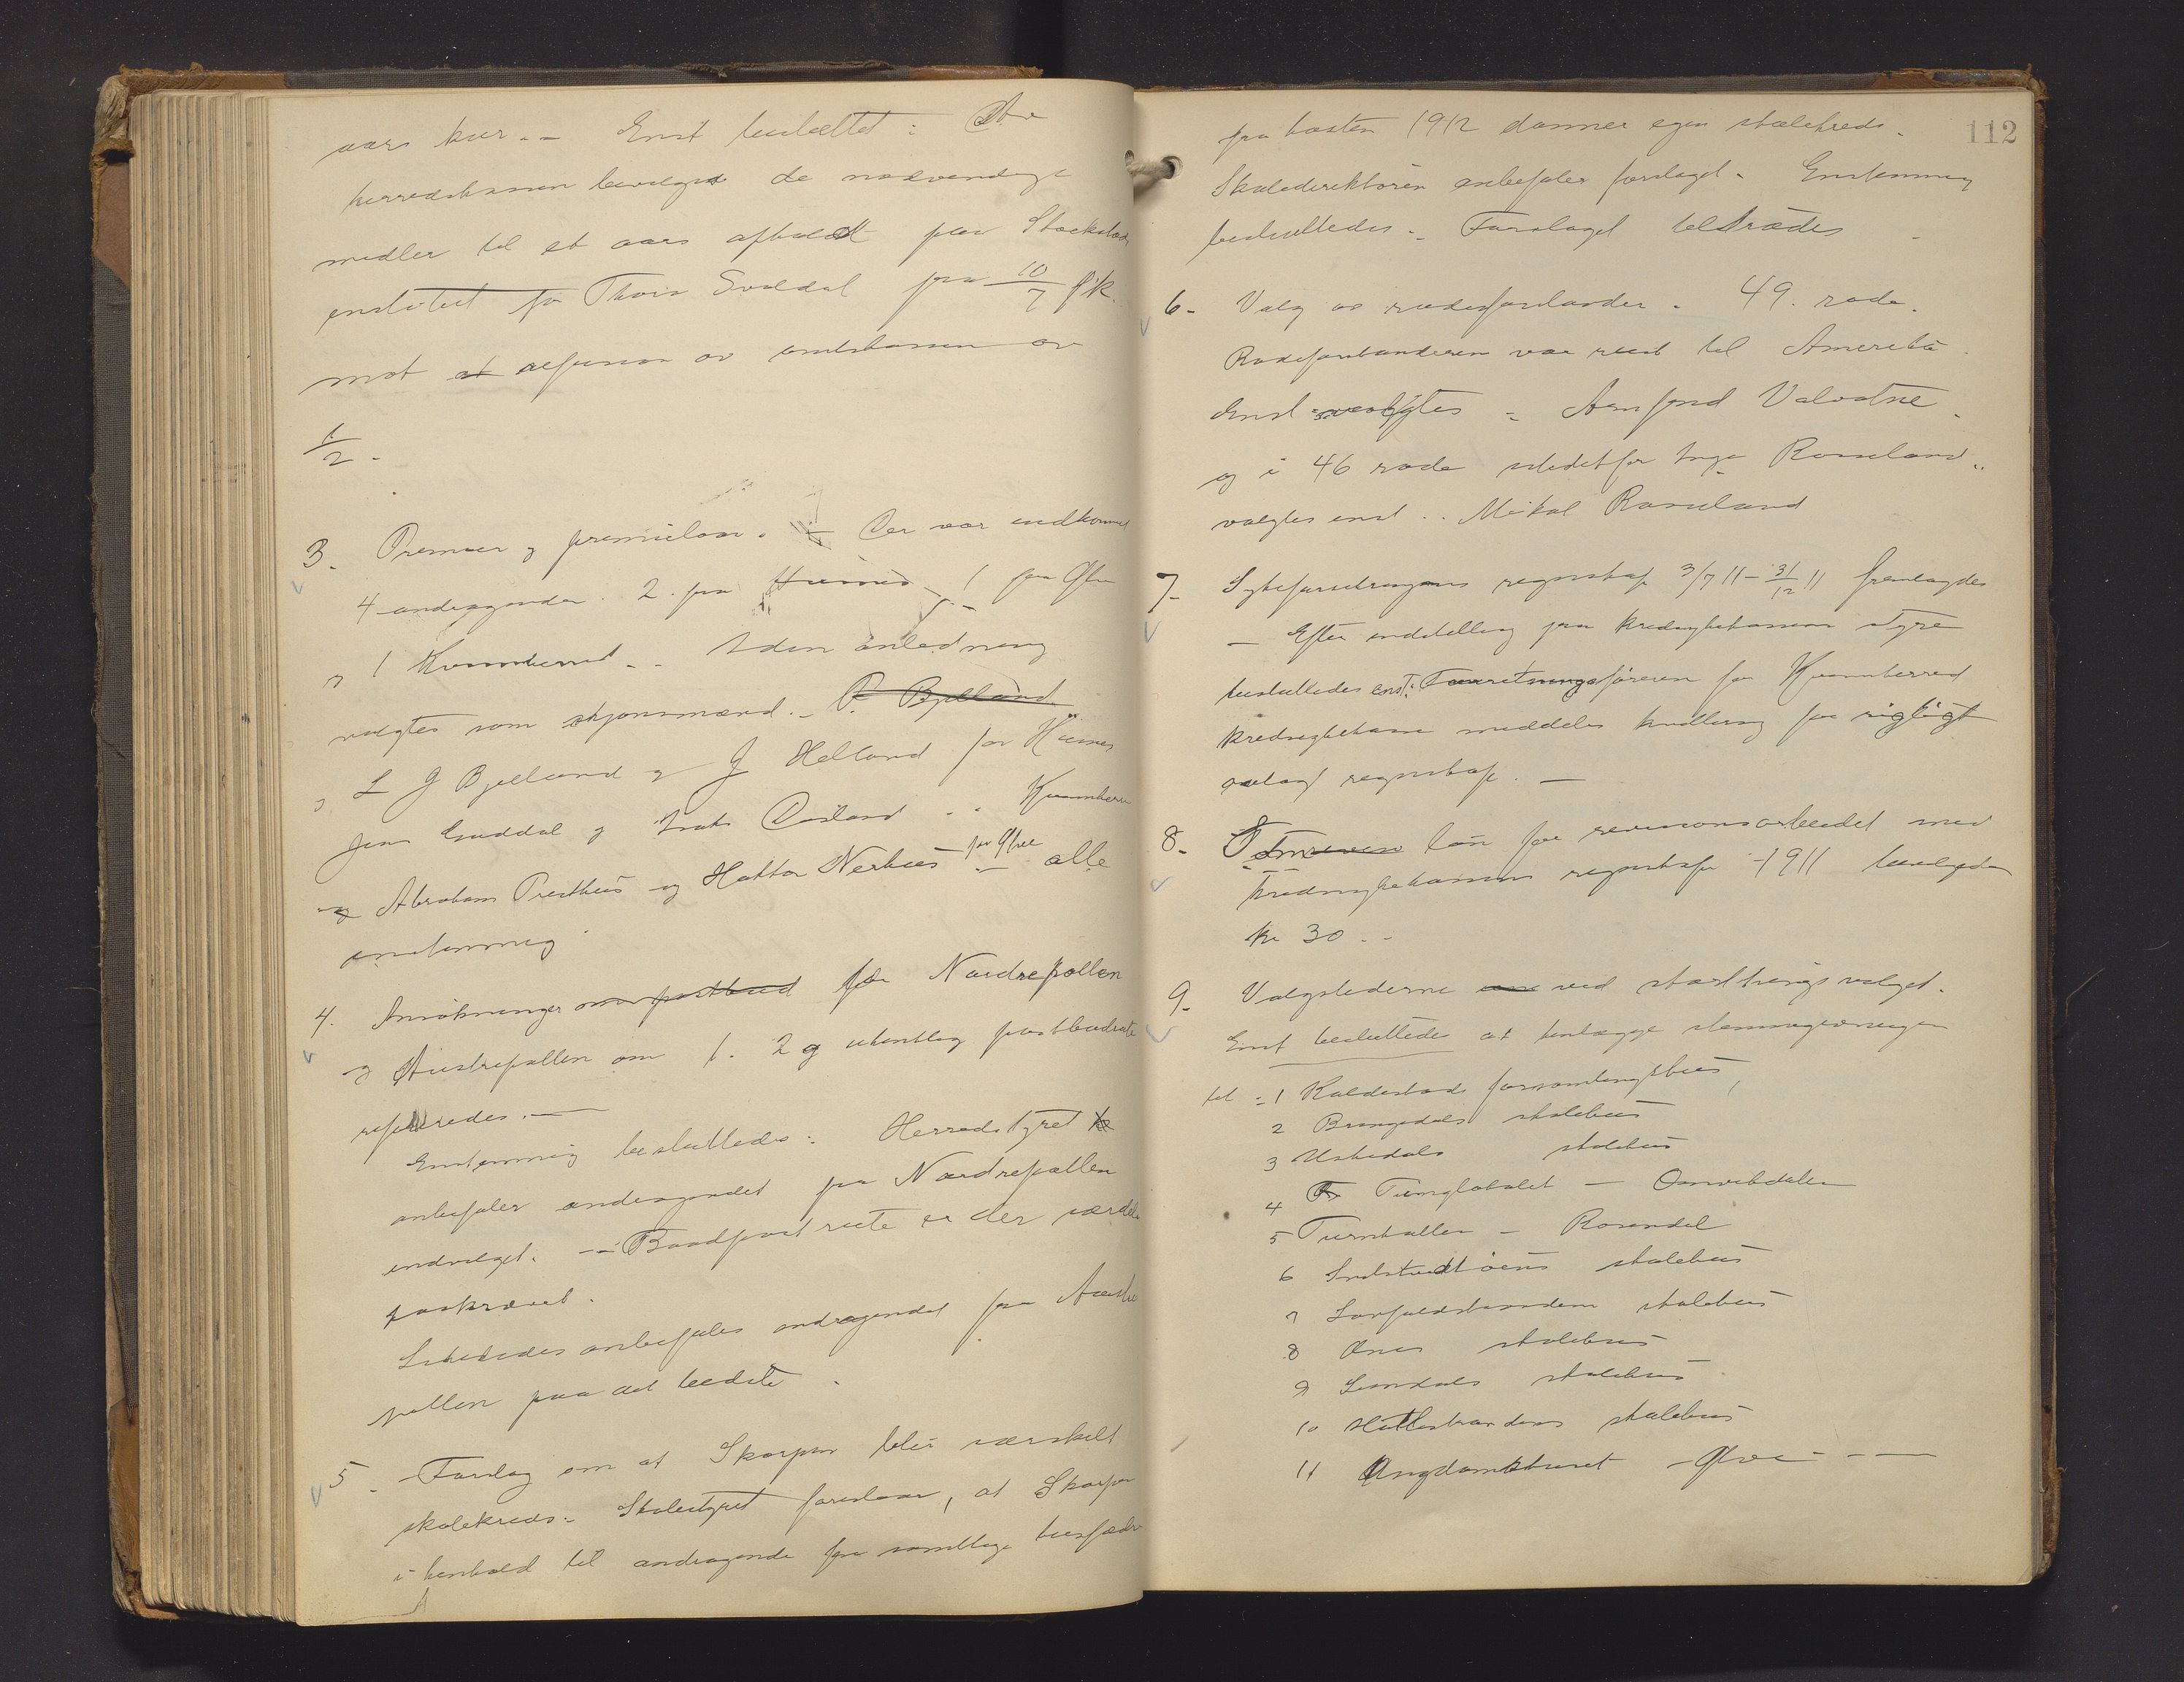 aars kur. – Enst besluttet: Av
herredskassen bevilges de nødvendige
midler til et aars ophold paa Stockstads
institut for Thora Svaldal fra 10/7 f.k.
mot at refusion av amtskassen av
1/2 –
3. Premier og premielaan. – Der var indkommet
4 andragender. 2 fra Husnes – 1 fra Ølve
og 1 Kvinnherred. – I den anledning
valgtes som skjønsmænd. – P. Bjelland
og L J Bjelland og J Helland for Husnes
Jens Guddal og Døsland .. Kvinnherred
og Abraham Presthus og Haktor Nerhus for Ølve – alle
enstemmig
4. Ansøkninger om postbud for Nordrepollen
og Austrepollen om 1. 2 g ukentlig postbudrute
refereredes. –
Enstemmig besluttedes: Herredstyret
anbefaler andragendet fra Nordrepollen
indvilget. – Baadpostrute er der særdeles
paakrævet.
Likeledes anbefales andragendet fra Austre
pollen paa det bedste.
5. Forslag om at Skorpen blir særskilt
skolekreds. Skolestyret foreslaar, at Skorpen
i henhold til andragende fra samtlige husfædre
112
fra høsten 1912 danner egen skolekreds.
Skoledirektøren anbefaler forslaget. Enstemmig
besluttedes: Forslaget tiltrædes –
6. Valg av rodeforstander. 49. rode.
Rodeforstanderen var reist til Amerika.
Enst valgtes: Arnfind Valvatne.
og i 46 rode istedetfor Inge Rosseland..
valgtes enst.. Mikal Rosseland
7. Sykeforsikringens regnskap 3/7 11 – 31/12 11 fremlagdes
– Efter indstilling fra kredssykekassens styre
besluttedes enst: Forretningsføreren for Kvinnherred
kredssykekasse meddeles kvittering for rigtigt
avlagt regnskap. –
8. løn for revisionsarbeidet med
kredssykekassens regnskap 1911 bevilgedes
kr 30. –
9. Valgstederne ved storthingsvalget.
Enst besluttedes at henlægge stemmegivningen
til: 1 Kaldestads forsamlingshus,
2 Brangedals skolehus
3 Uskedals skolehus
4 Tinglokalet – Omvikdalen
5 Turnhallen – Rosendal
6 Snilstveitøens skolehus
7 Lonfaldstrandens skolehus
8 Ænes skolehus
9 Sundals skolehus
10 Hattestrandens skolehus
11 Ungdomshuset – Ølve –